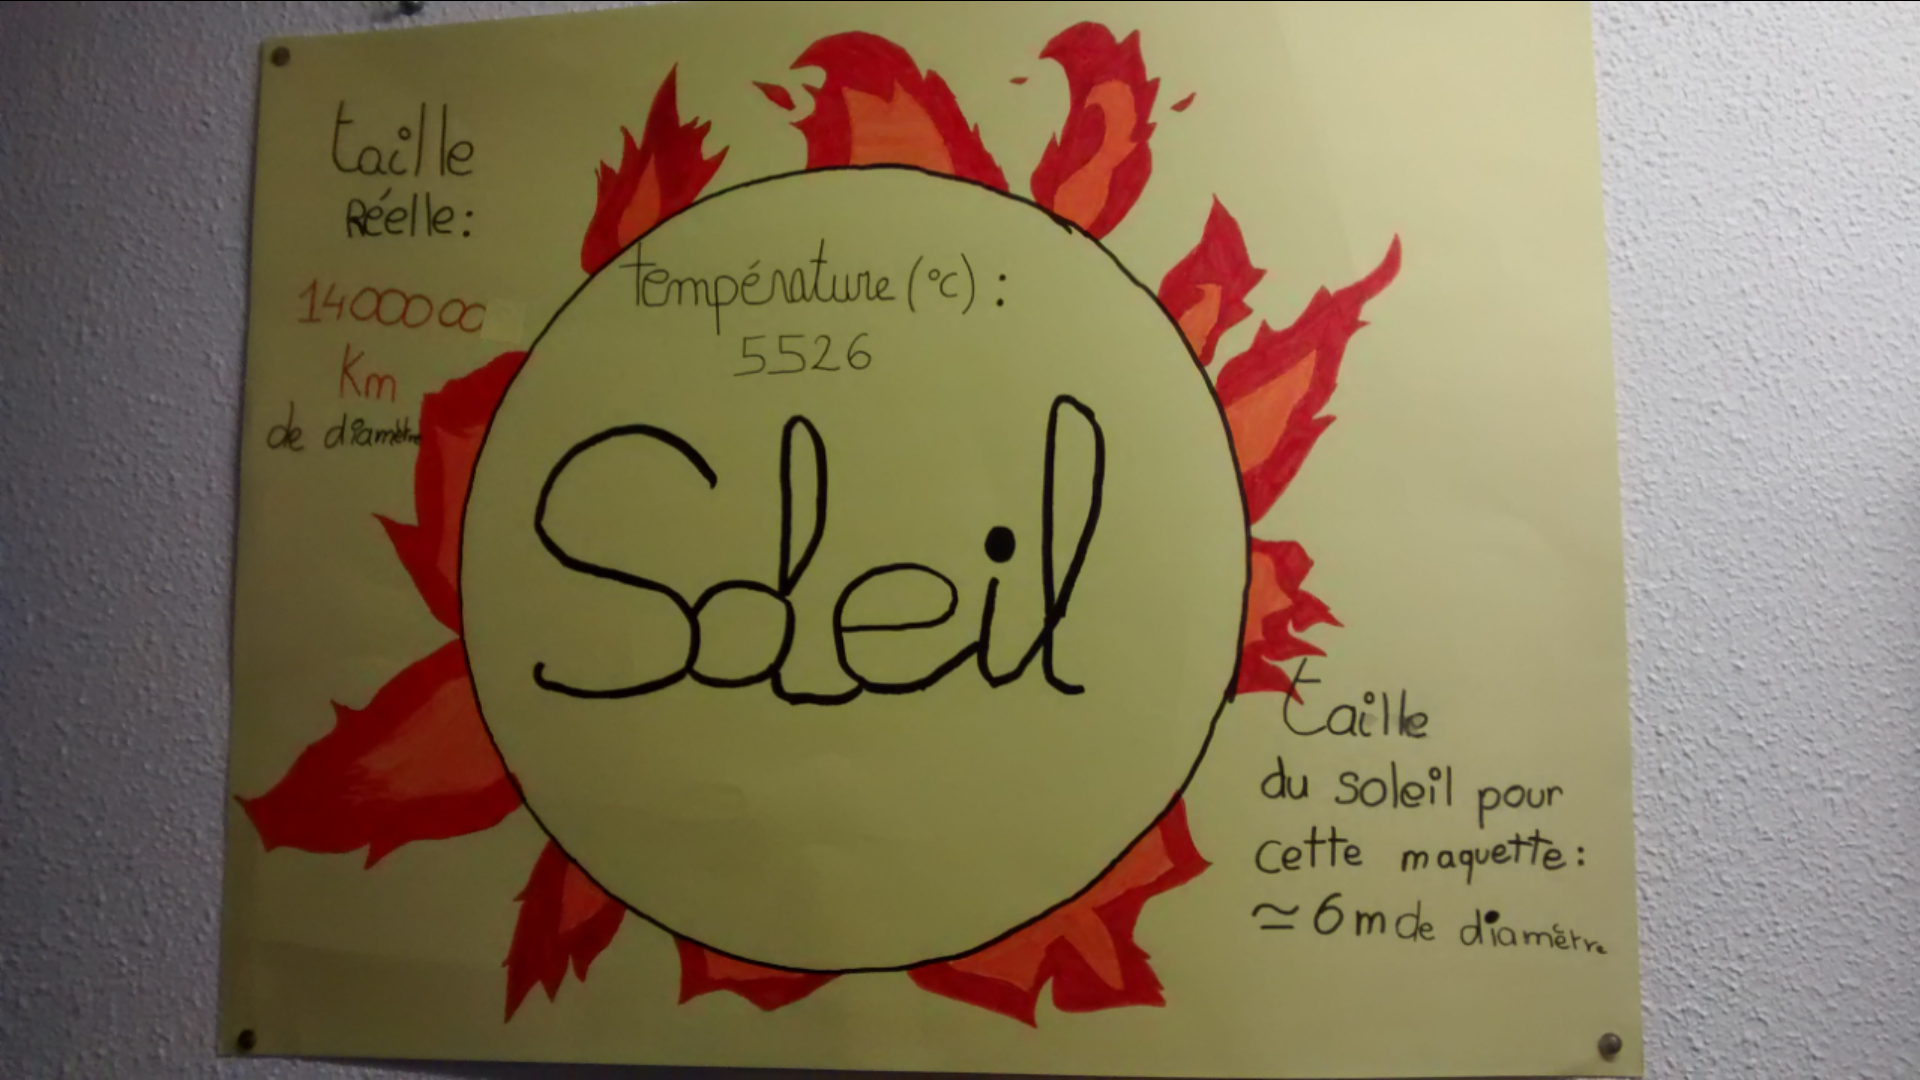 taille
Réelle:
1400000
Km
de diamètre
température (°c) :
5526
Soleil
taille
du soleil pour
cette maquette:
≃ 6m de diamètre